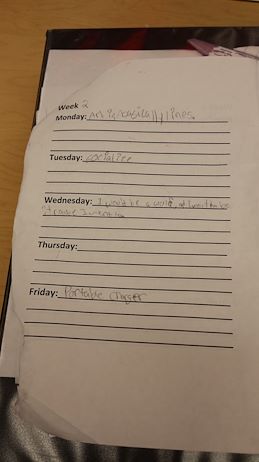 Week 2
Monday: Art is basically lines
Tuesday: socialize
Wednesday: I would be a wolf,
Thursday:
Friday: Portable charger